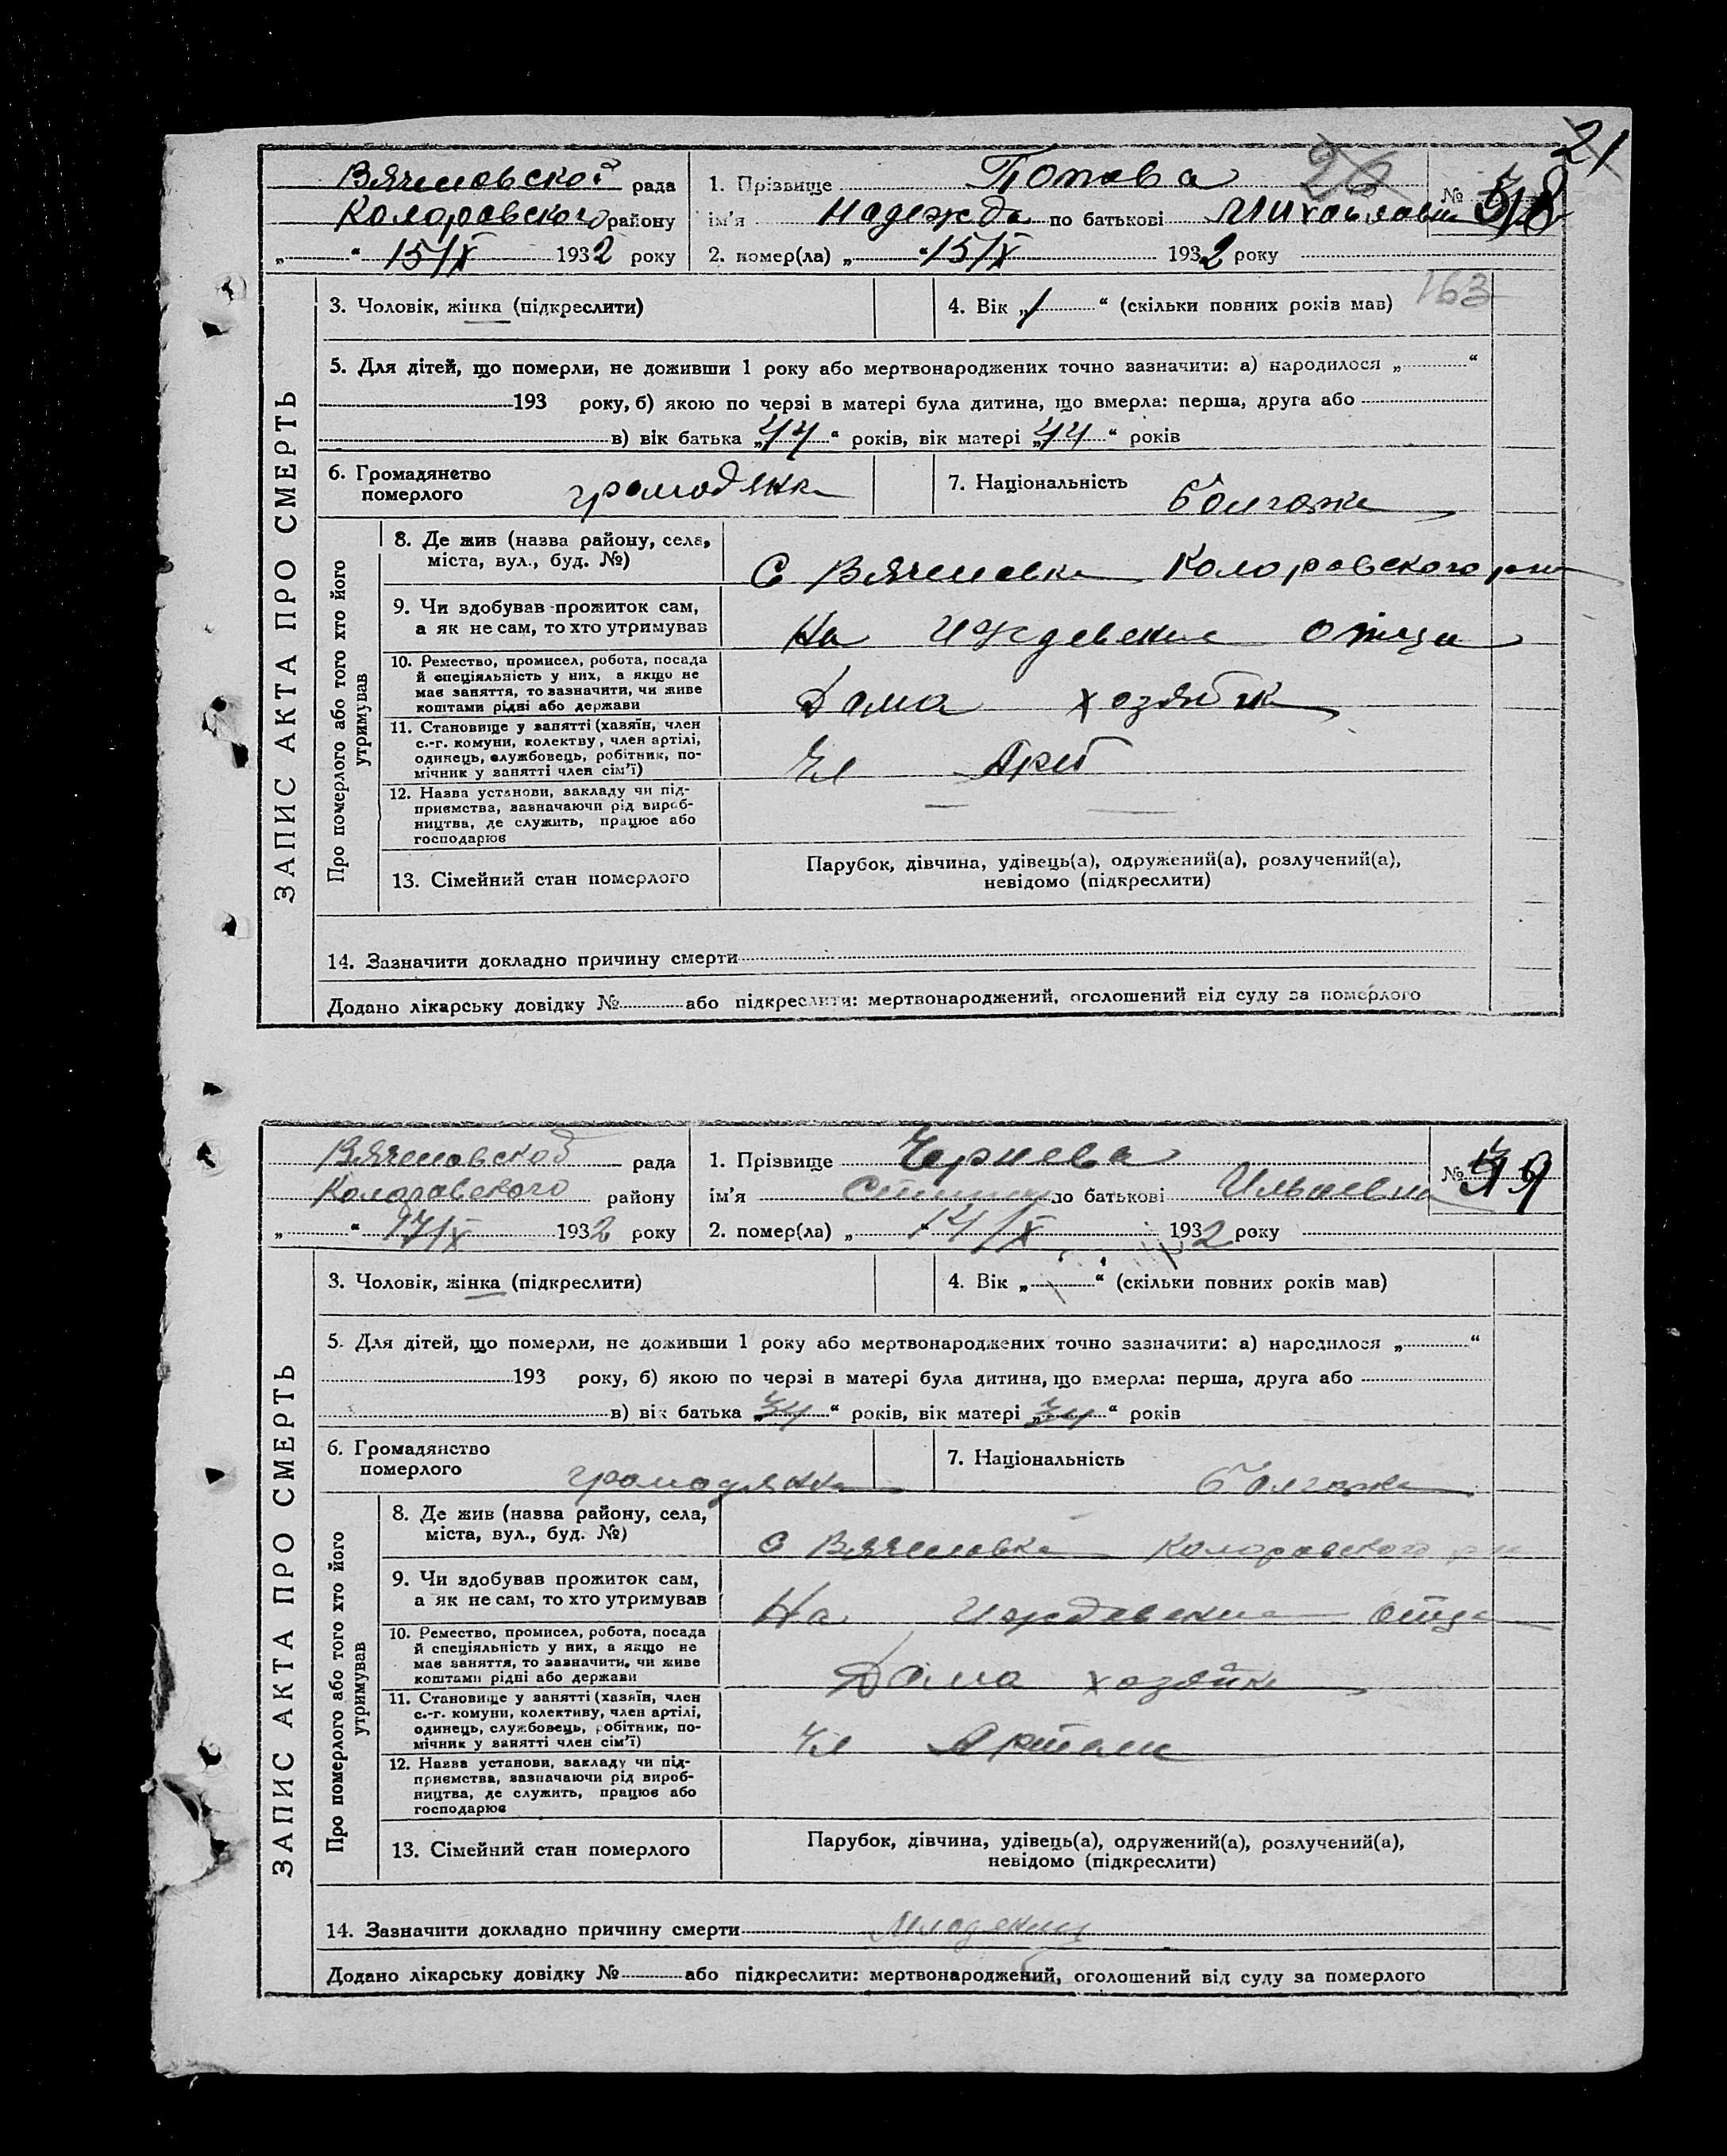 21
Вячеловской рада 1. Прізвище Попова 26 № 58
Коларовского району ім'я Надежда по батькові Михайловн
„ “ 15/X 1932 року 2. помер(ла) „ “ 15/X 1932 року
163
3. Чоловік, жінка (підкреслити) 4. Вік „1“ (скільки повних років мав)
5. Для дітей, що померли, не доживши 1 року або мертвонароджених точно зазначити: а) народилося „ “
193 року, б) якою по черзі в матері була дитина, що вмерла: перша, друга або
в) вік батька „44“ років, вік матері „44“ років
6. Громадянство
померлого громадянка 7. Національність болгарка
ЗАПИС АКТА ПРО СМЕРТЬ
Про померлого або того хто його
утримував
8. Де жив (назва району, села,
міста, вул., буд. №) С Вячеловка Коларовского
9. Чи здобував прожиток сам,
а як не сам, то хто утримував На иждевении отца
10. Ремество, промисел, робота, посада
й спеціяльність у них, а якщо не
має заняття, то зазначити, чи живе
коштами рідні або держави Дома хозяйка
11. Становище у занятті (хазяїн, член
с.-г. комуни, колектву, член артілі,
одинець, службовець, робітник, по-
мічник у занятті член сім'ї) Чл Арт
12. Назва установи, закладу чи під-
приємства, зазначаючи рід вироб-
ництва, де служить, працює або
господарює — —
13. Сімейний стан померлого Парубок, дівчина, удівець(а), одружений(а), розлучений(а),
невідомо (підкреслити)
14. Зазначити докладно причину смерти
Додано лікарську довідку № або підкреслити: мертвонароджений, оголошений від суду за померлого
Вячеловской рада 1. Прізвище Чернева № 59
Коларовского району ім'я по батькові Ильевна
„ “ 17/X 1932 року 2. помер(ла) „ “ 14/X 1932 року
3. Чоловік, жінка (підкреслити) 4. Вік „ “ (скільки повних років мав)
5. Для дітей, що померли, не доживши 1 року або мертвонароджених точно зазначити: а) народилося „ “
193 року, б) якою по черзі в матері була дитина, що вмерла: перша, друга або
в) вік батька „34“ років, вік матері „34“ років
6. Громадянство
померлого громадянка 7. Національність болгарка
ЗАПИС АКТА ПРО СМЕРТЬ
Про померлого або того хто його
утримував
8. Де жив (назва району, села,
міста, вул., буд. №) С Вячеловка Коларовского
9. Чи здобував прожиток сам,
а як не сам, то хто утримував На иждевении отца
10. Ремество, промисел, робота, посада
й спеціяльність у них, а якщо не
має заняття, то зазначити, чи живе
коштами рідні або держави Дома хозяйка
11. Становище у занятті (хазяїн, член
с.-г. комуни, колективу, член артілі,
одинець, службовець, робітник, по-
мічник у занятті член сім'ї) Чл Артели
12. Назва установи, закладу чи під-
приємства, зазначаючи рід вироб-
ництва, де служить, працює або
господарює
13. Сімейний стан померлого Парубок, дівчина, удівець(а), одружений(а), розлучений(а),
невідомо (підкреслити)
14. Зазначити докладно причину смерти
Додано лікарську довідку № або підкреслити: мертвонароджений, оголошений від суду за померлого